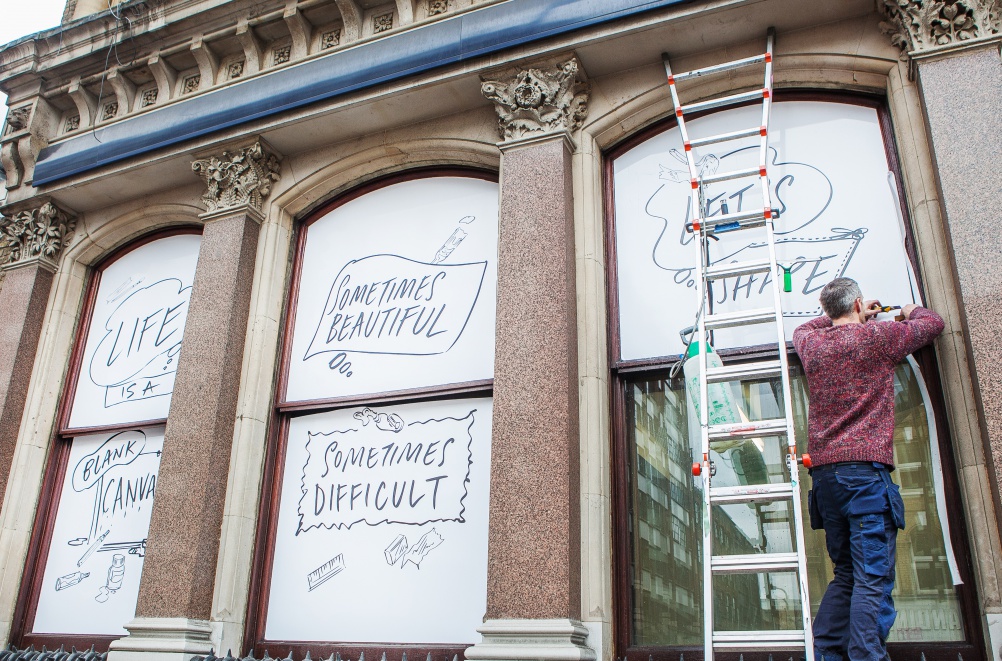 LIFE
IS A
BLANK
CANVA
SOMETIMES
BEAUTIFUL
SOMETIMES
DIFFICULT
LET'S
SHAPE